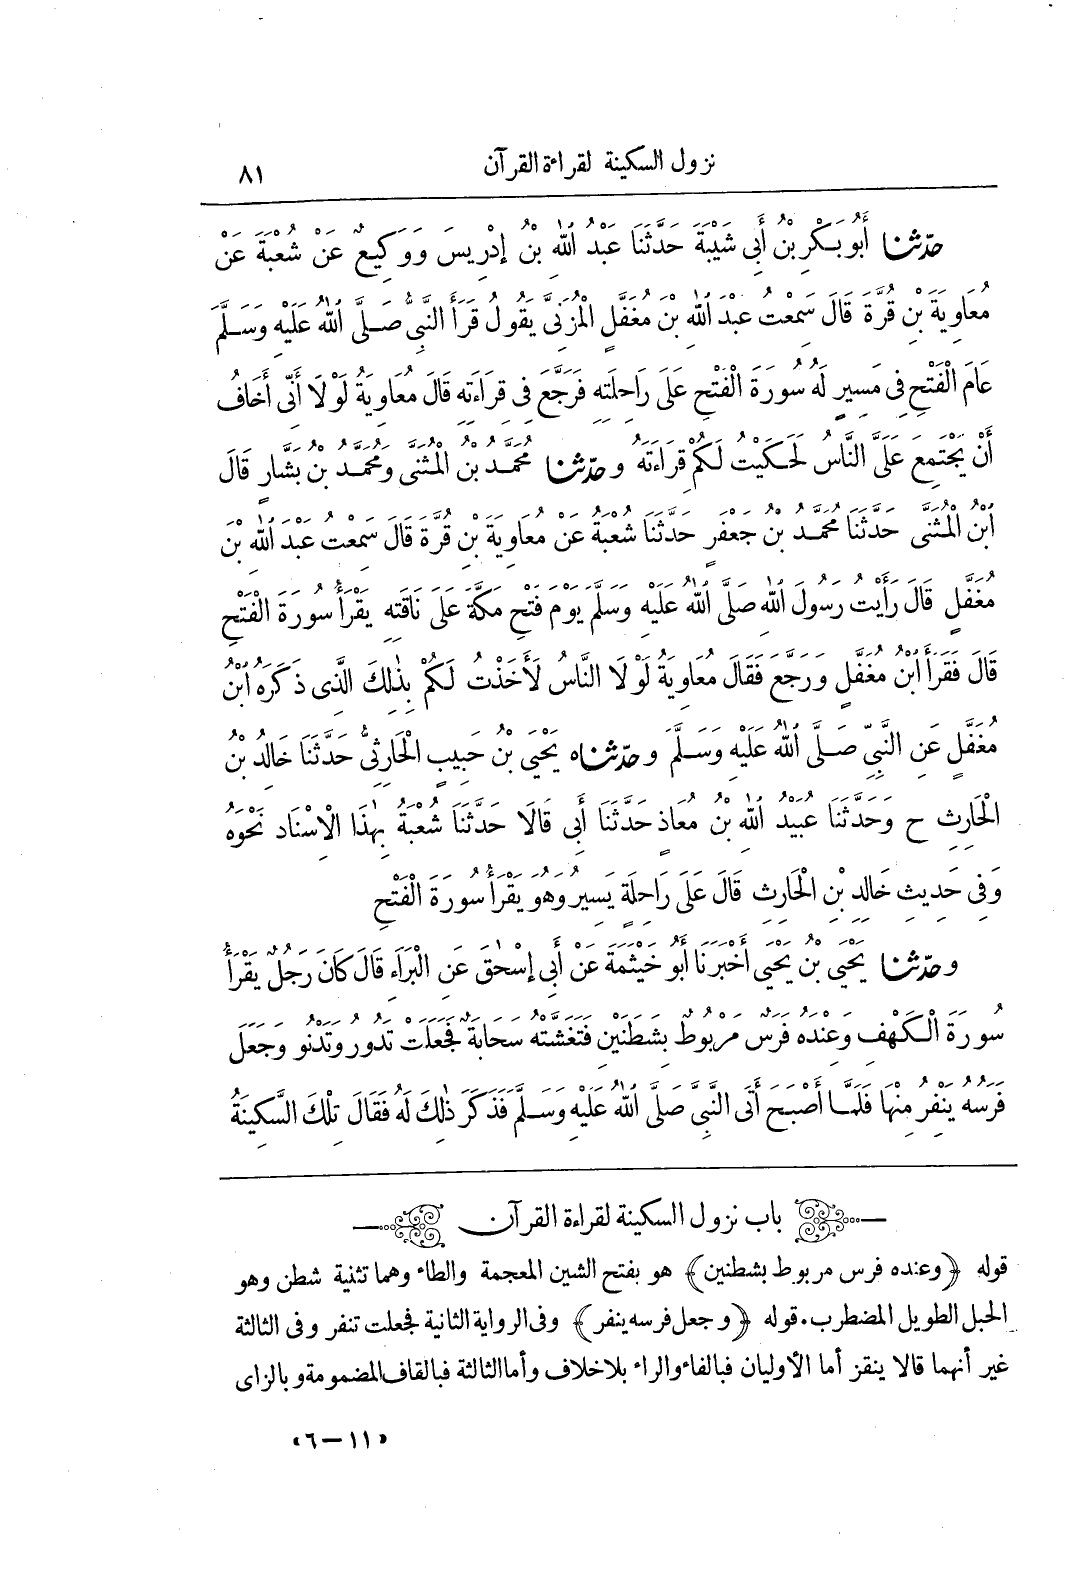 نزول السكينة لقراءة القرآن
٨١
حدّثنا أَبُو بَكْرِ بْنُ أَبِي شَيْبَةَ حَدَّثَنَا عَبْدُ اللهِ بْنُ إِدْرِيسَ وَوَكِيعٌ عَنْ شُعْبَةَ عَنْ
مُعَاوِيَةَ بْنِ قُرَّةَ قَالَ سَمِعْتُ عَبْدَ اللهِ بْنَ مُغَفَّلٍ الْمُزَنِيَّ يَقُولُ قَرَأَ النَّبِيُّ صَلَّى اللهُ عَلَيْهِ وَسَلَّمَ
عَامَ الْفَتْحِ فِي مَسِيرٍ لَهُ سُورَةَ الْفَتْحِ عَلَى رَاحِلَتِهِ فَرَجَّعَ فِي قِرَاءَتِهِ قَالَ مُعَاوِيَةُ لَوْلَا أَنِّي أَخَافُ
أَنْ يَجْتَمِعَ عَلَيَّ النَّاسُ لَحَكَيْتُ لَكُمْ قِرَاءَتَهُ وحدّثنا مُحَمَّدُ بْنُ الْمُثَنَّى وَمُحَمَّدُ بْنُ بَشَّارٍ قَالَ
ابْنُ الْمُثَنَّى حَدَّثَنَا مُحَمَّدُ بْنُ جَعْفَرٍ حَدَّثَنَا شُعْبَةُ عَنْ مُعَاوِيَةَ بْنِ قُرَّةَ قَالَ سَمِعْتُ عَبْدَ اللهِ بْنَ
مُغَفَّلٍ قَالَ رَأَيْتُ رَسُولَ اللهِ صَلَّى اللهُ عَلَيْهِ وَسَلَّمَ يَوْمَ فَتْحِ مَكَّةَ عَلَى نَاقَتِهِ يَقْرَأُ سُورَةَ الْفَتْحِ
قَالَ فَقَرَأَ ابْنُ مُغَفَّلٍ وَرَجَّعَ فَقَالَ مُعَاوِيَةُ لَوْلَا النَّاسُ لَأَخَذْتُ لَكُمْ بِذٰلِكَ الَّذِي ذَكَرَهُ ابْنُ
مُغَفَّلٍ عَنِ النَّبِيِّ صَلَّى اللهُ عَلَيْهِ وَسَلَّمَ وحدّثناه يَحْيَى بْنُ حَبِيبٍ الْحَارِثِيُّ حَدَّثَنَا خَالِدُ بْنُ
الْحَارِثِ ح وَحَدَّثَنَا عُبَيْدُ اللهِ بْنُ مُعَاذٍ حَدَّثَنَا أَبِي قَالَا حَدَّثَنَا شُعْبَةُ بِهٰذَا الْإِسْنَادِ نَحْوَهُ
وَفِي حَدِيثِ خَالِدِ بْنِ الْحَارِثِ قَالَ عَلَى رَاحِلَةٍ يَسِيرُ وَهُوَ يَقْرَأُ سُورَةَ الْفَتْحِ
وحدّثنا يَحْيَى بْنُ يَحْيَى أَخْبَرَنَا أَبُو خَيْثَمَةَ عَنْ أَبِي إِسْحٰقَ عَنِ الْبَرَاءِ قَالَ كَانَ رَجُلٌ يَقْرَأُ
سُورَةَ الْكَهْفِ وَعِنْدَهُ فَرَسٌ مَرْبُوطٌ بِشَطَنَيْنِ فَتَغَشَّتْهُ سَحَابَةٌ فَجَعَلَتْ تَدُورُ وَتَدْنُو وَجَعَلَ
فَرَسُهُ يَنْفِرُ مِنْهَا فَلَمَّا أَصْبَحَ أَتَى النَّبِيَّ صَلَّى اللهُ عَلَيْهِ وَسَلَّمَ فَذَكَرَ ذٰلِكَ لَهُ فَقَالَ تِلْكَ السَّكِينَةُ
باب نزول السكينة لقراءة القرآن
قوله ﴿وعنده فرس مربوط بشطنين﴾ هو بفتح الشين المعجمة والطاء وهما تثنية شطن وهو
الحبل الطويل المضطرب. قوله ﴿وجعل فرسه ينفر﴾ وفى الرواية الثانية فجعلت تنفر وفى الثالثة
غير أنهما قالا ينقز أما الأوليان فبالفاء والراء بلا خلاف وأما الثالثة فبالقاف المضمومة وبالزاى
«١١ — ٦»